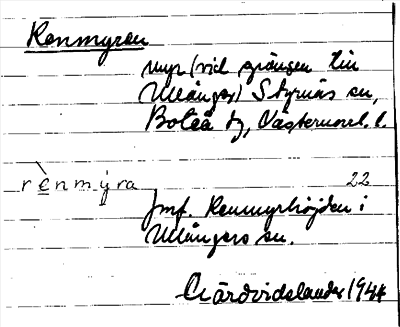 Renmyren
myr (vid gränsen till
Ullånger) Styrnäs sn,
Boteå tg, Västernorrl. l.
rènmýra 22
Jmf. Renmyrhöjden i
Ullångers sn.
Gärdvidslander 1944